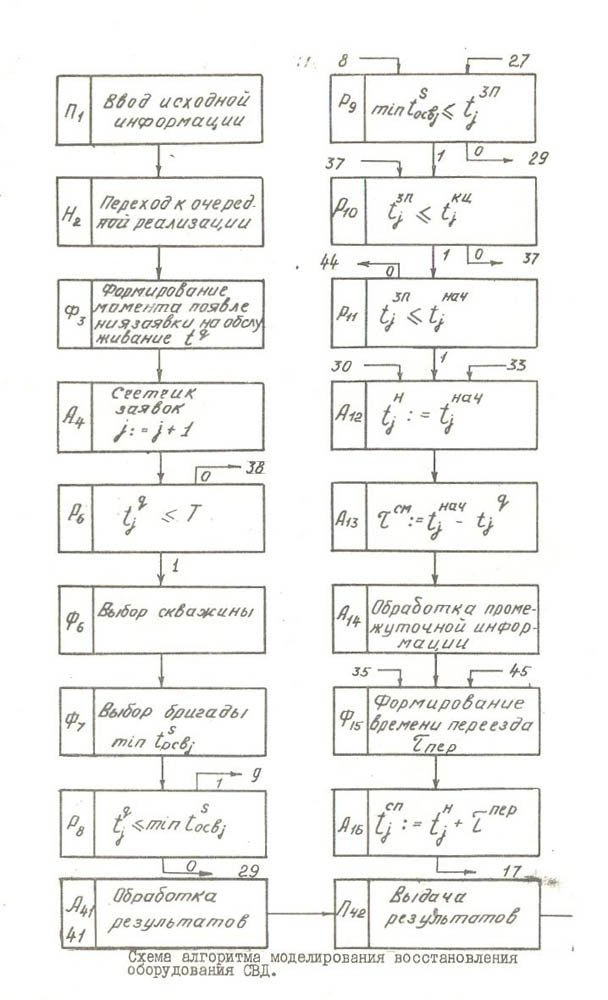 П1
Ввод исходной
информации
Н2
Переход к очеред-
ной реализации
Ф3
Формирование
момента появле
ния заявки на обслу-
живание t^q
А4
Счетчик
заявок
j := j + 1
38
0
Р6
t_j^q ≤ T
1
Ф6
Выбор скважины
Ф7
Выбор бригады
min t_освj^s
9
1
Р8
t_j^q ≤ min t_освj^s
0
29
А41
41
Обработка
результатов
8
27
Р9
min t_освj^s ≤ t_j^зп
1
0
29
37
Р10
t_j^зп ≤ t_j^кц
44
0
1
0
37
Р11
t_j^зп ≤ t_j^нач
30
1
33
А12
t_j^н := t_j^нач
А13
τ^см := t_j^нач - t_j^q
А14
Обработка проме-
жуточной инфор-
мации
35
45
Ф15
Формирование
времени переезда
τ_пер
А16
t_j^сп := t_j^н + τ^пер
17
П42
Выдача
результатов
Схема алгоритма моделирования восстановления
оборудования СВД.